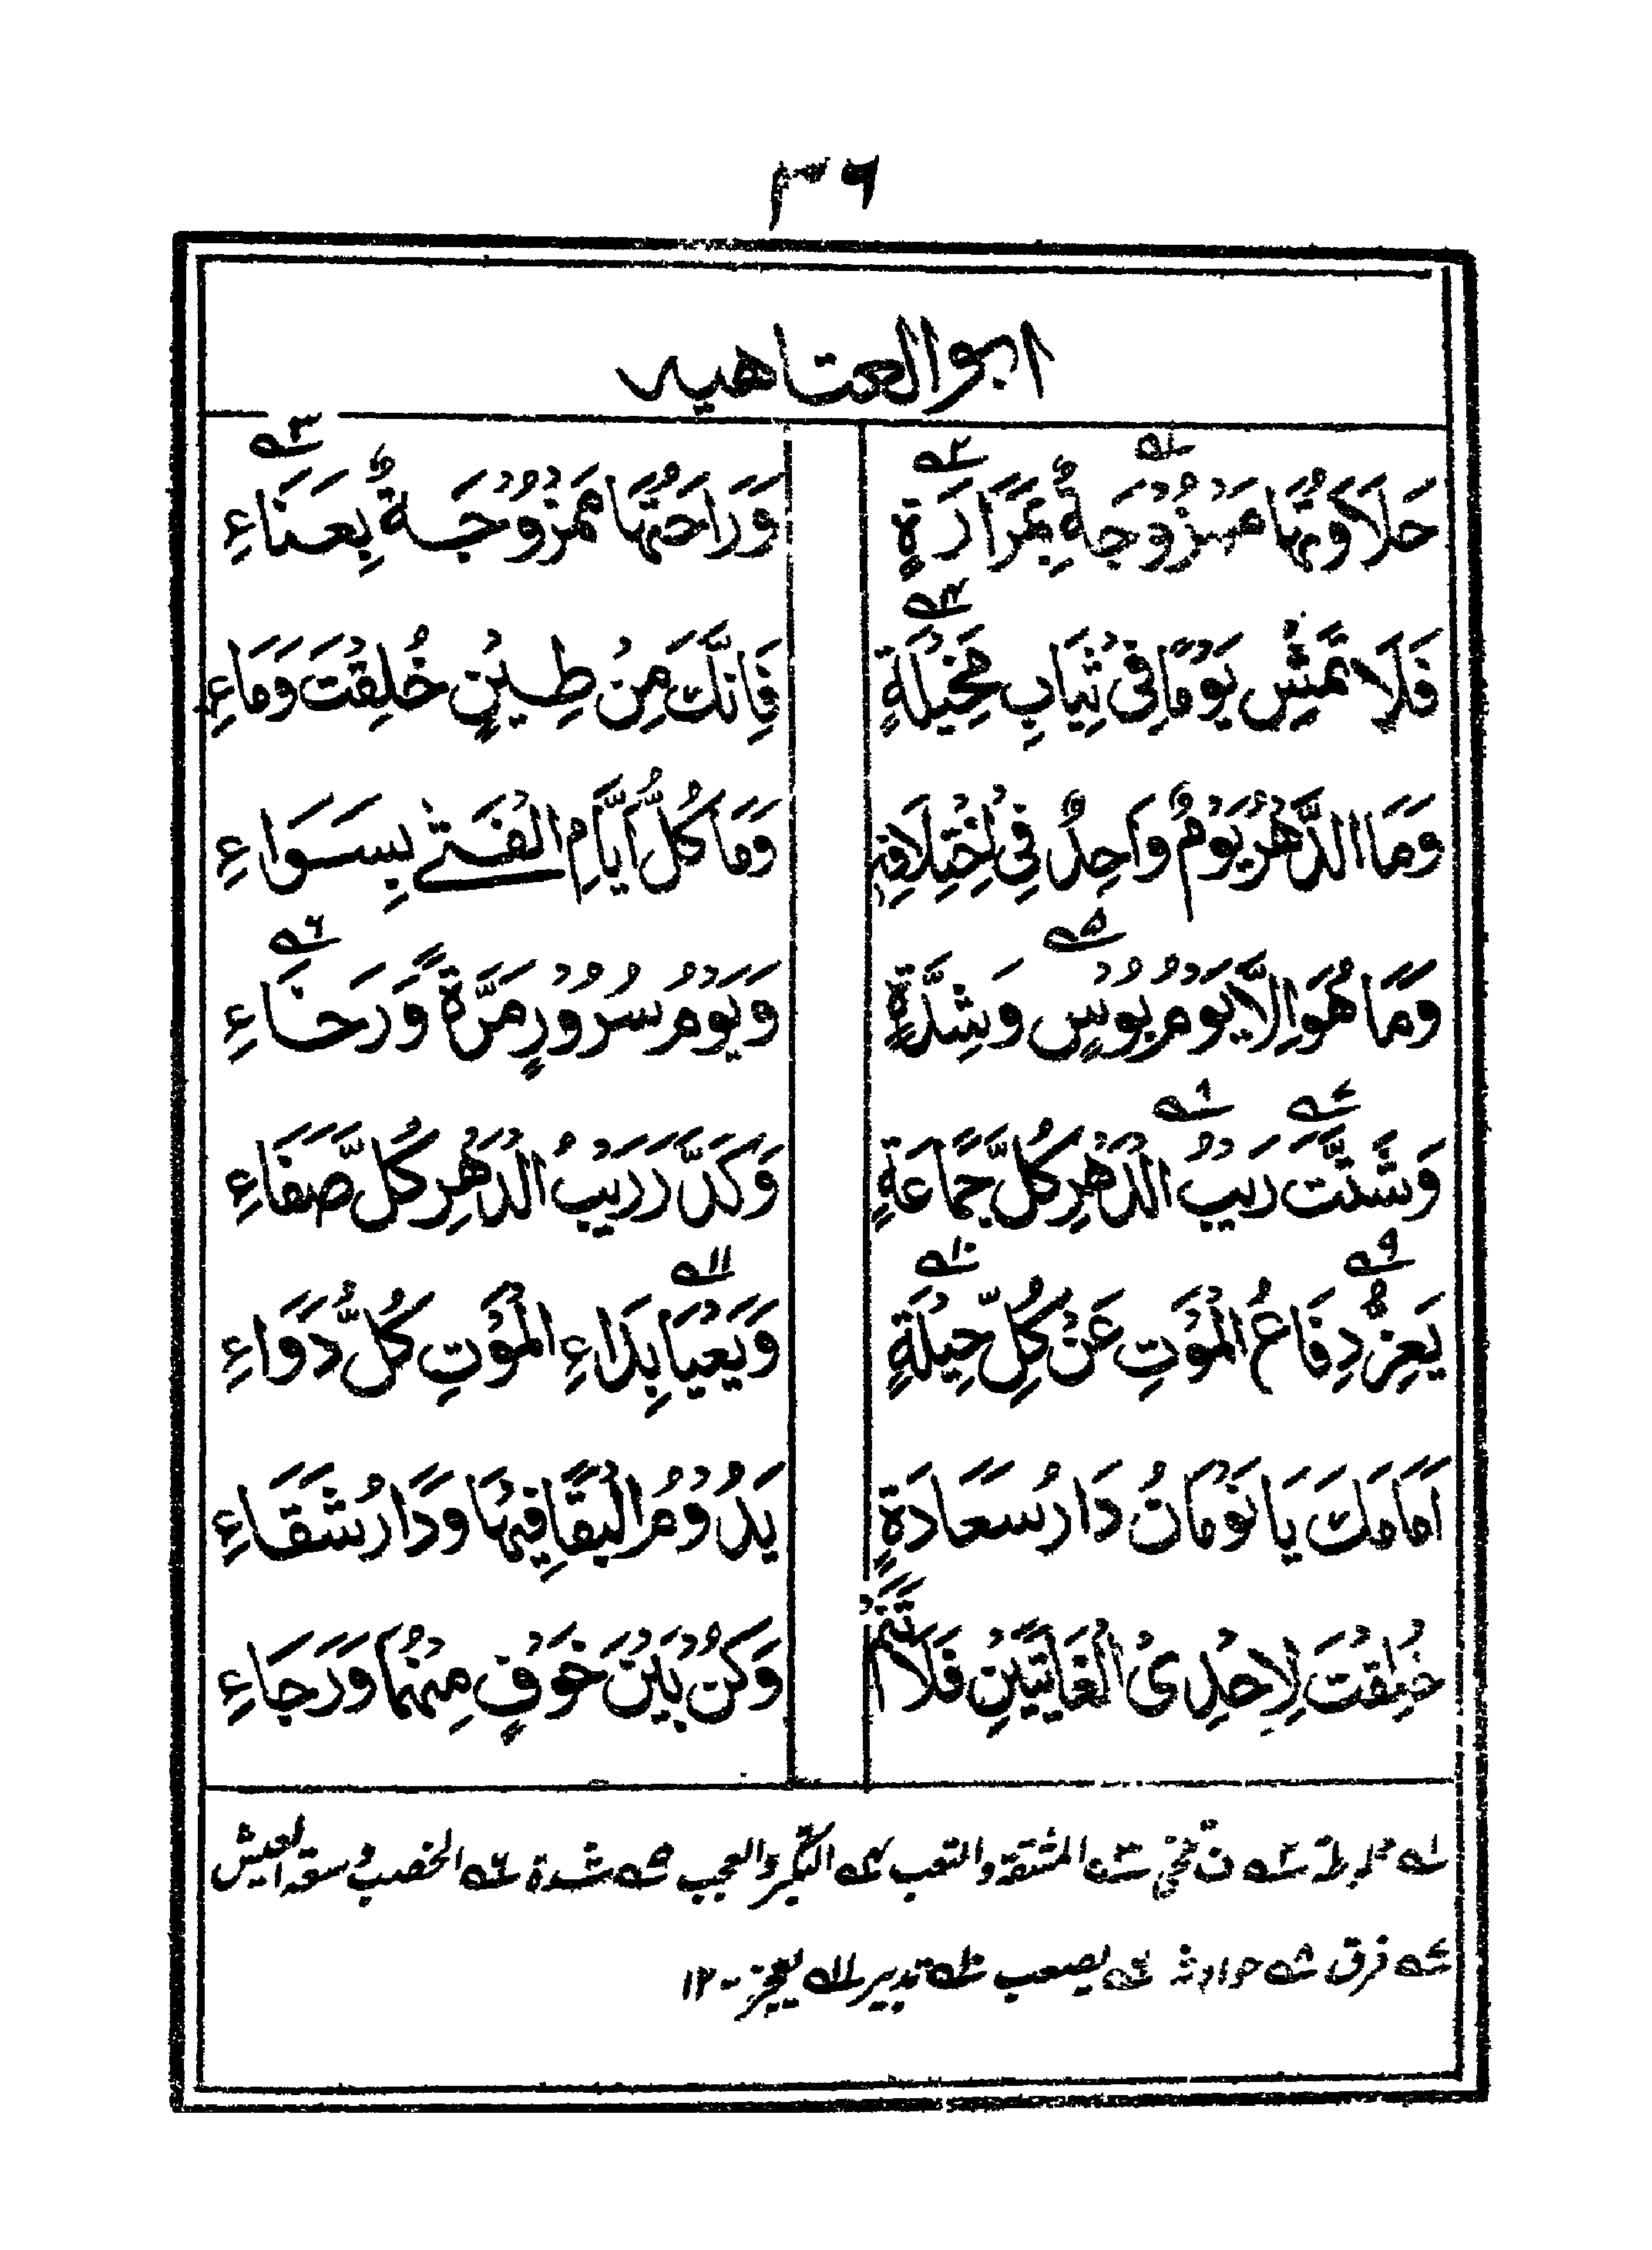 ٣٦
ابوالعتاهيه
حَلَاوَتُهَا مَمْزُوْجَةٌ بِمَرَارَةٍ وَرَاحَتُهَا مَمْزُوْجَةٌ بِعَنَاءِ
فَلَا تَمْشِ يَوْمًا فِيْ ثِيَابِ مَخِيْلَةٍ فَاِنَّكَ مِنْ طِيْنٍ خُلِقْتَ وَمَاءِ
وَمَا الدَّهْرُ يَوْمٌ وَاحِدٌ فِي اخْتِلَافِهٖ وَمَا كُلُّ اَيَّامِ الْفَتٰى بِسَوَاءِ
وَمَا هُوَ اِلَّا يَوْمُ بُوْسٍ وَشِدَّةٍ وَيَوْمُ سُرُوْرٍ مَرَّةً وَّرَخَاءِ
وَشَتَّتَ رَيْبُ الدَّهْرِ كُلَّ جَمَاعَةٍ وَكَدَّرَ رَيْبُ الدَّهْرِ كُلَّ صَفَاءِ
يَعِزُّ دِفَاعُ الْمَوْتِ عَنْ كُلِّ حِيْلَةٍ وَيَعْيَا بِدَاءِ الْمَوْتِ كُلُّ دَوَاءِ
اَمَامَكَ يَا نَوْمَانُ دَارُ سَعَادَةٍ يَدُوْمُ الْبَقَا فِيْهَا وَدَارُ شَقَاءِ
خُلِقْتَ لِاِحْدَى الْغَايَتَيْنِ فَلَا تَنَمْ وَكُنْ بَيْنَ خَوْفٍ مِنْهُمَا وَرَجَاءِ
١ه مخلوطة ٢ه ٣ه المشقة والتعب ٤ه التكبر والعجب ٥ه شدة ٦ه الخصب وسعة العيش
٧ه فرق ٨ه حوادث ٩ه يصعب ١٠ه تدبير ١١ه يعجز - ١٢